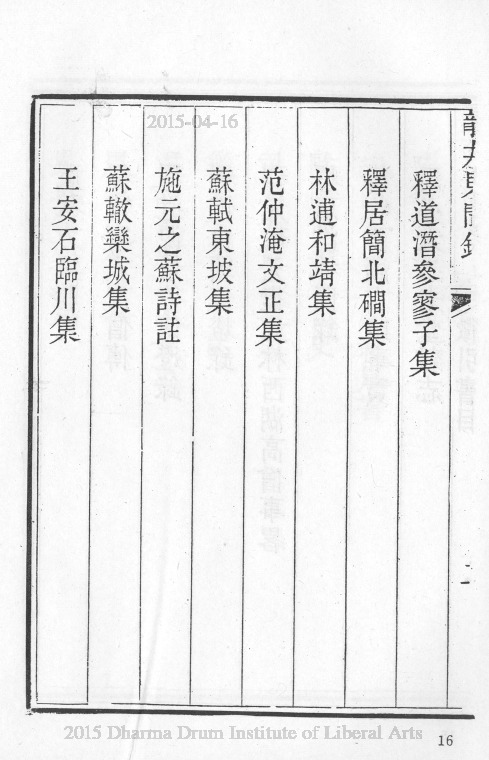 2015-04-16
龍井見聞錄
釋道潛參寥子集
釋居簡北磵集
林逋和靖集
范仲淹文正集
蘇軾東坡集
施元之蘇詩註
蘇轍欒城集
王安石臨川集
2015 Dharma Drum Institute of Liberal Arts
16